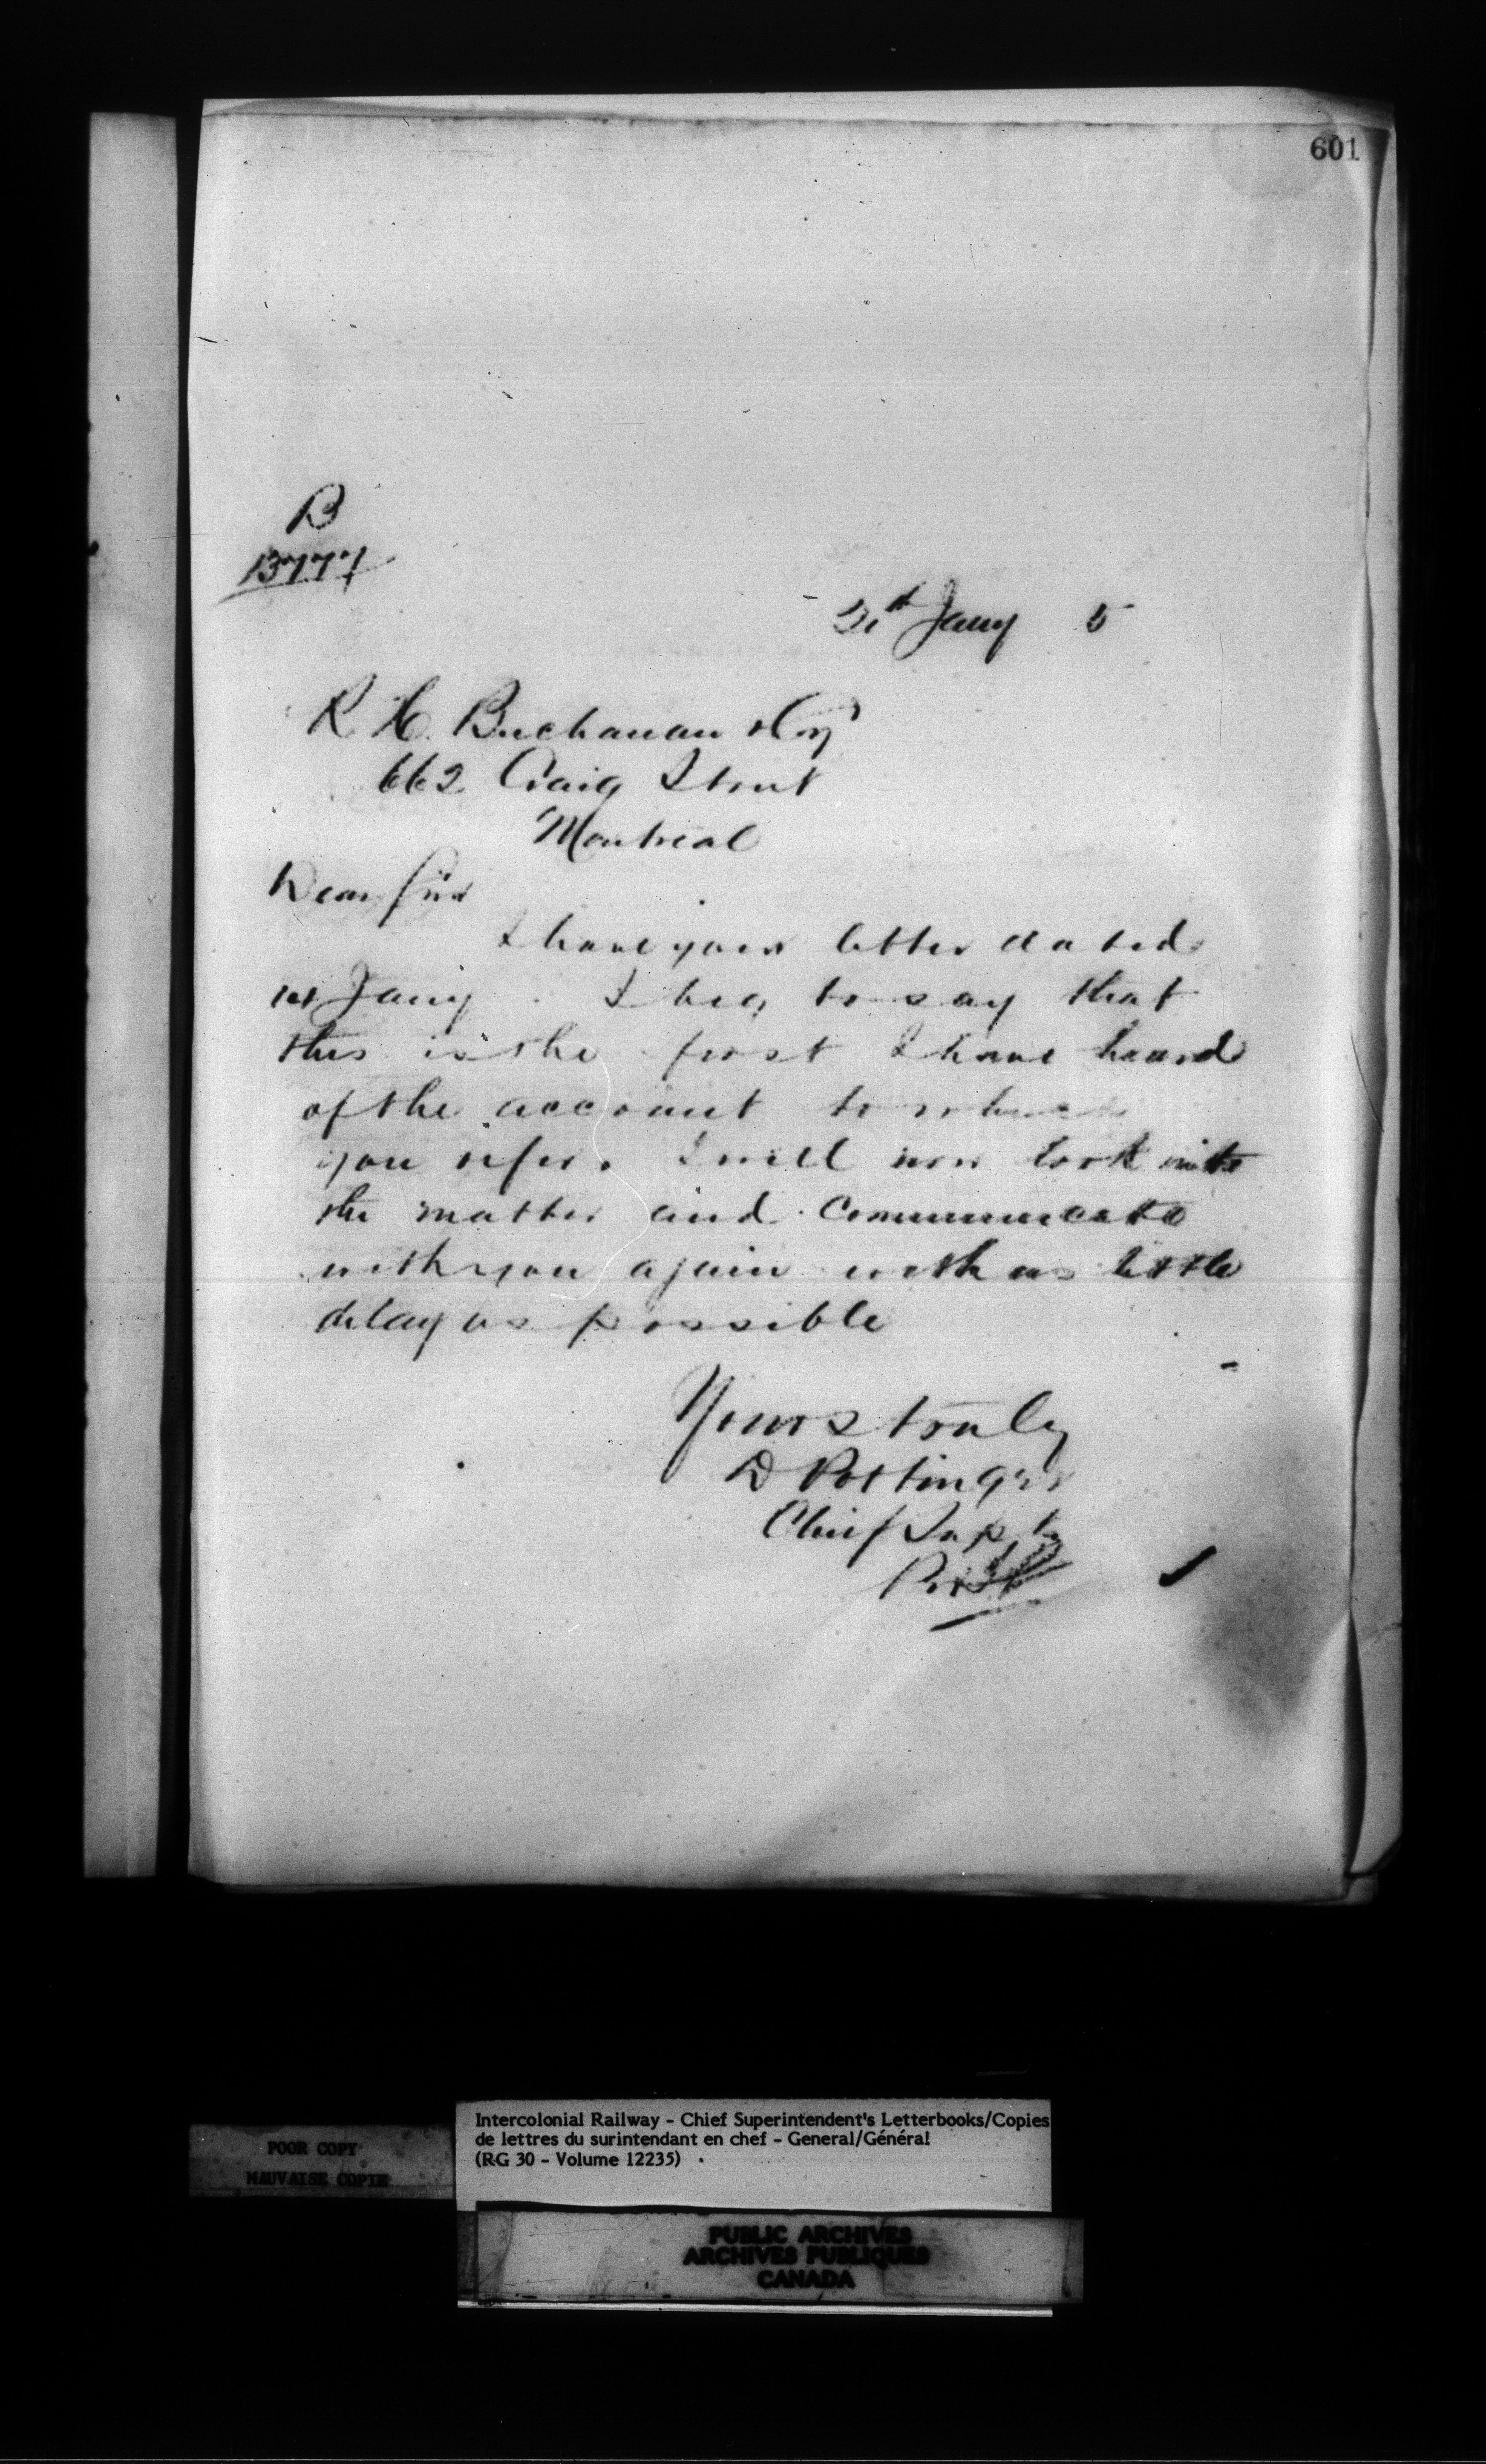 601
B
13777
Jany 5
R. H. Buchanan & Coy
662 Craig Street
Montreal
Dear Sir
I have your letter dated
1st Jany. I beg to say that
this is the first I have heard
of the account to which
you refer. I will now look into
the matter and communicate
with you again with as little
delay as possible
Yours truly
D Pottinger
Chief Supt
Intercolonial Railway - Chief Superintendent's Letterbooks/Copies
de lettres du surintendant en chef - General/Général
(RG 30 - Volume 12235)
POOR COPY
MAUVAISE COPIE
PUBLIC ARCHIVES
ARCHIVES PUBLIQUES
CANADA